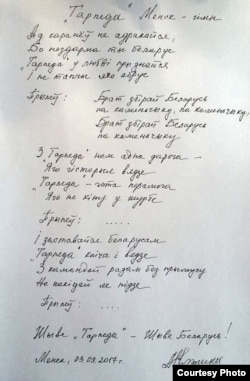 "Тарпеда" Менск - гімн
Ад каранёў не адракайся,
Бо нездарма ты беларус
"Тарпеда" у любві прызнайся
І не тапчы яго абрус
Прыпеў: Брат збірай Беларусь
па каменьчыку, па каменьчыку
Брат збірай Беларусь
па каменьчыку
З "Тарпеда" нам адна дарога -
Яго гісторыя вядзе
"Тарпеда" - гэта прамога
Яго не кіну у журбе
Прыпеў: .....
І заставайся беларусам
"Тарпеда" кліча і вядзе
З камандай разам без прымусу
Не пакідай яе нідзе
Прыпеў: ....
Жыве "Тарпеда" - Жыве Беларусь!
Менск, 03.09.2017г.
Courtesy Photo